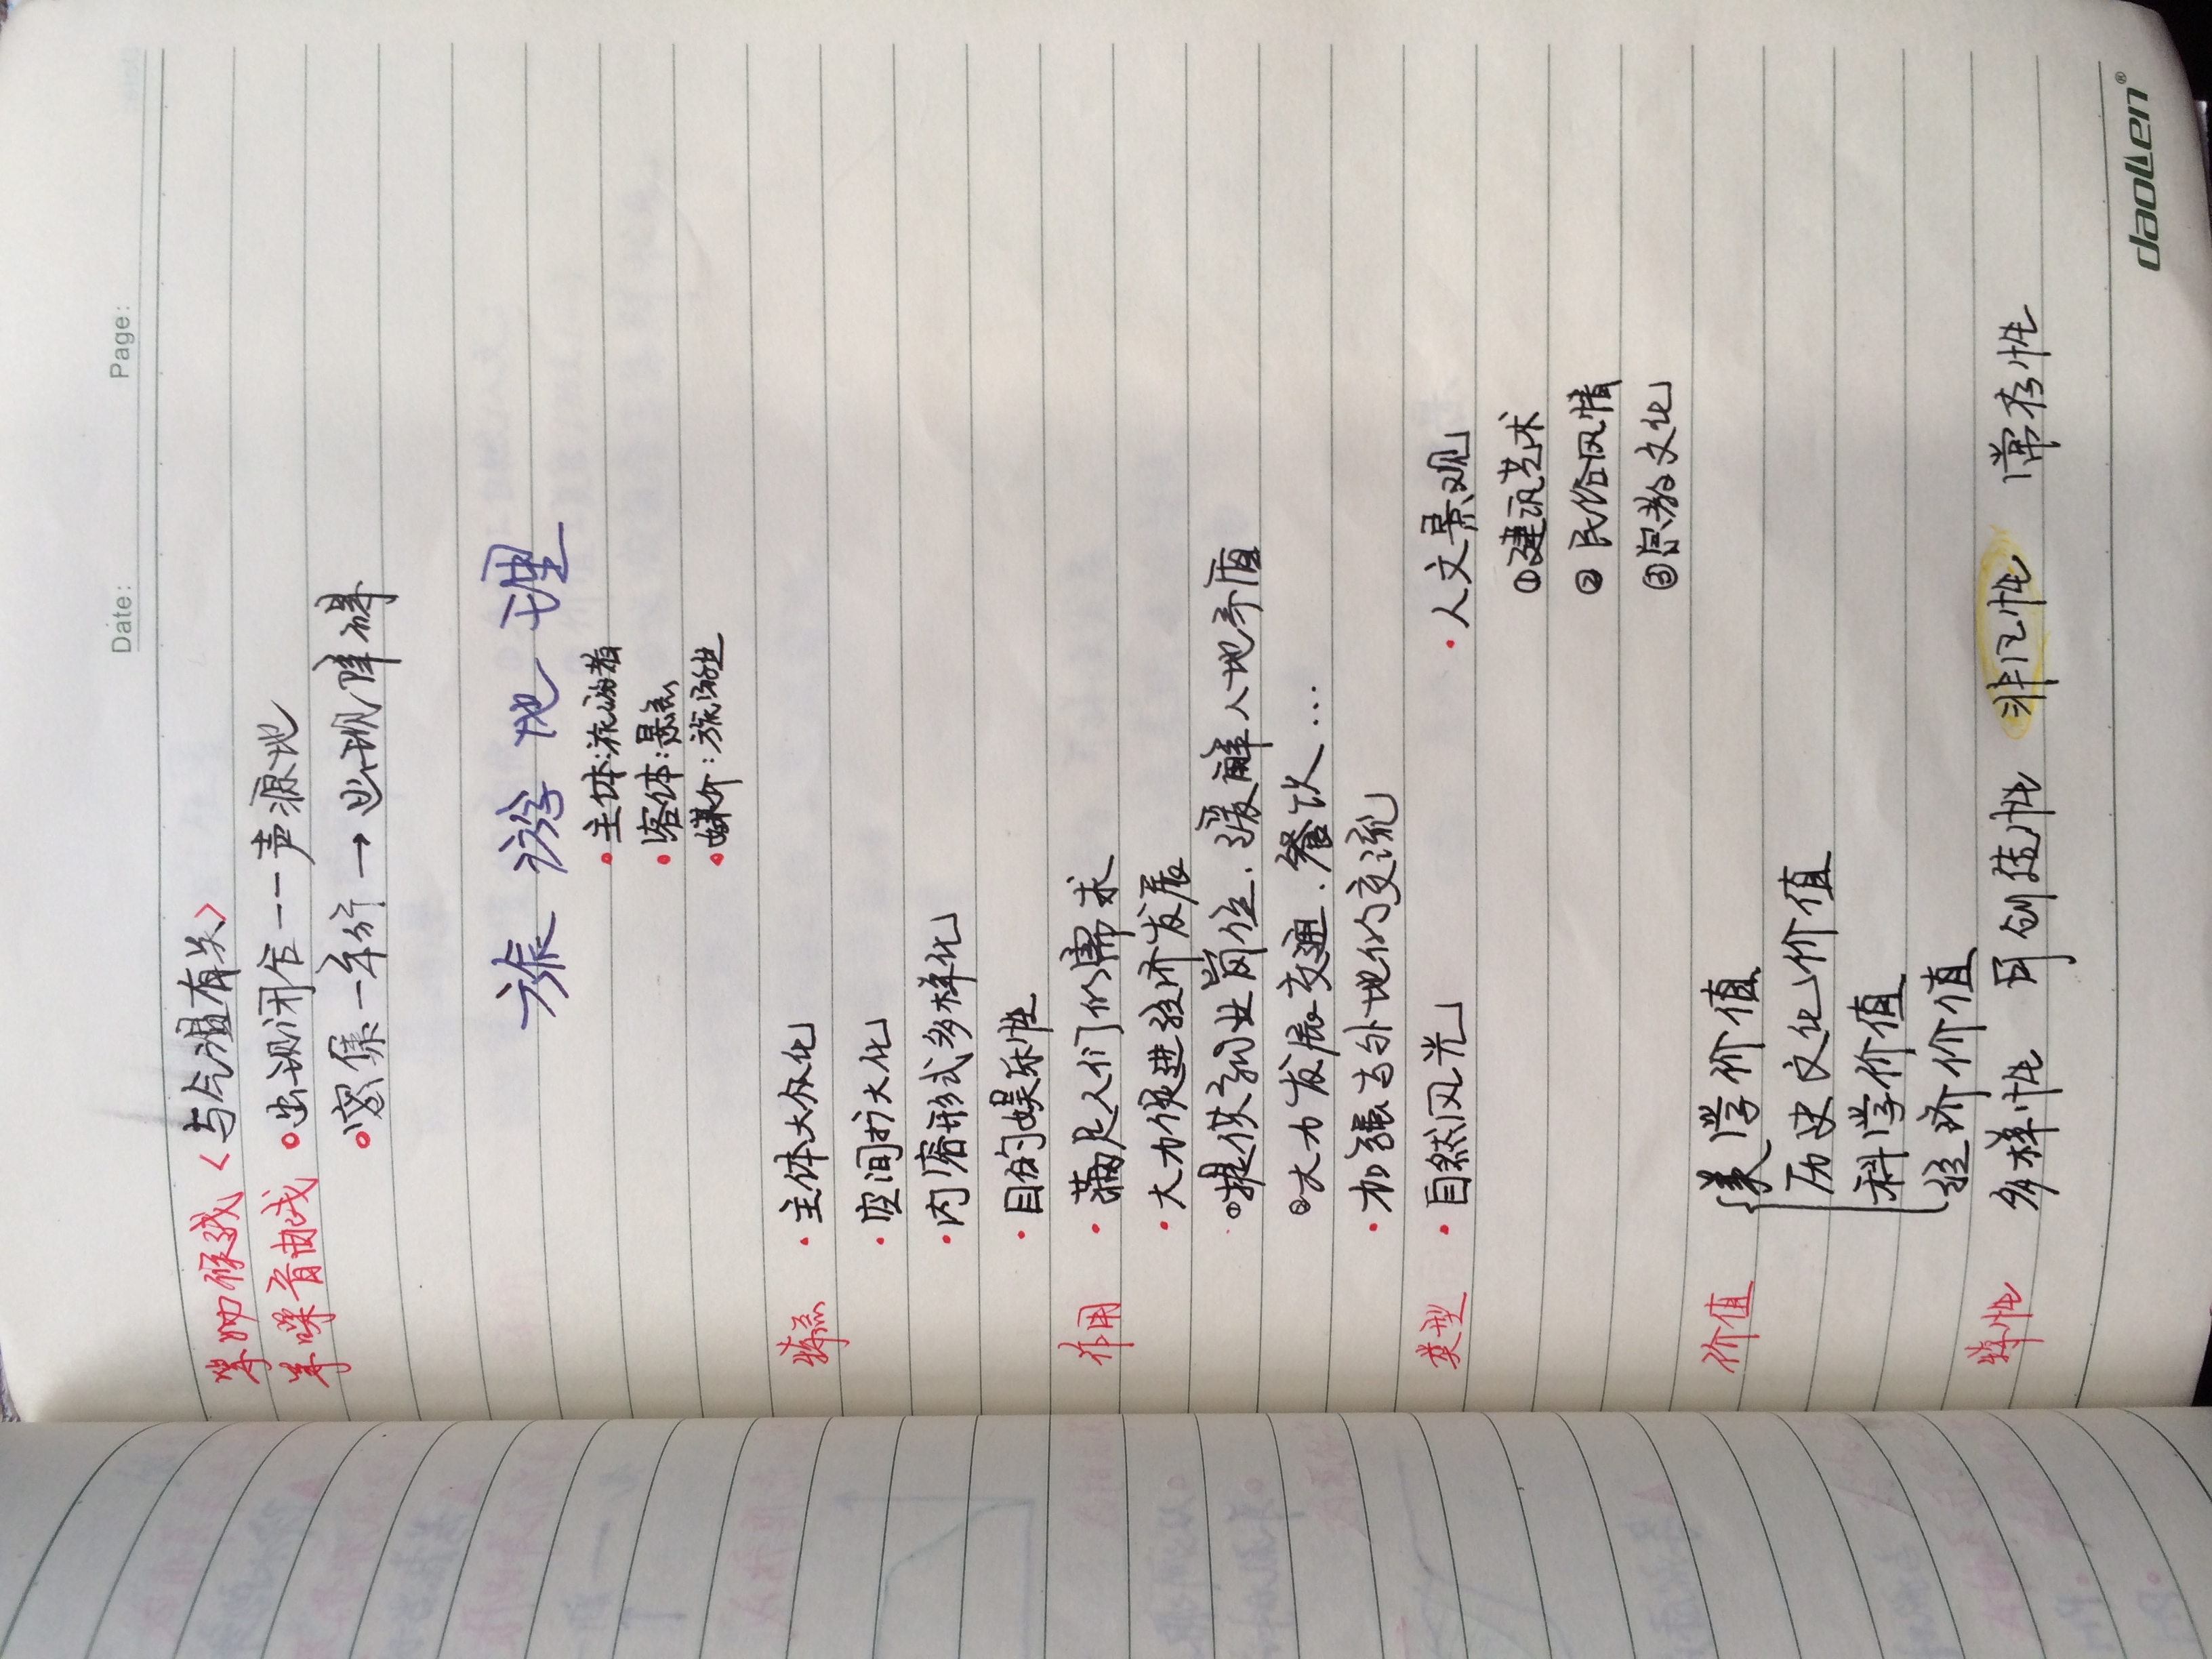 Date: Page:
等物候线〈与气温有关〉
等噪音曲线 •出现闭合——声源地
•密集—平行→出现障碍
旅游地理
•主体:旅游者
•客体:景点
•媒介:旅游业
特点 •主体大众化
•空间扩大化
•内容形式多样化
•目的娱乐性
作用 •满足人们的需求
•大力促进经济发展
①提供就业岗位、缓解人地矛盾
②大力发展交通、餐饮…
•加强与外地的交流
类型 •自然风光 •人文景观
①建筑艺术
②民俗风情
③宗教文化
价值 {美学价值
历史文化价值
科学价值
经济价值
特性 多样性 可创造性 非凡性 常存性
daoLen®